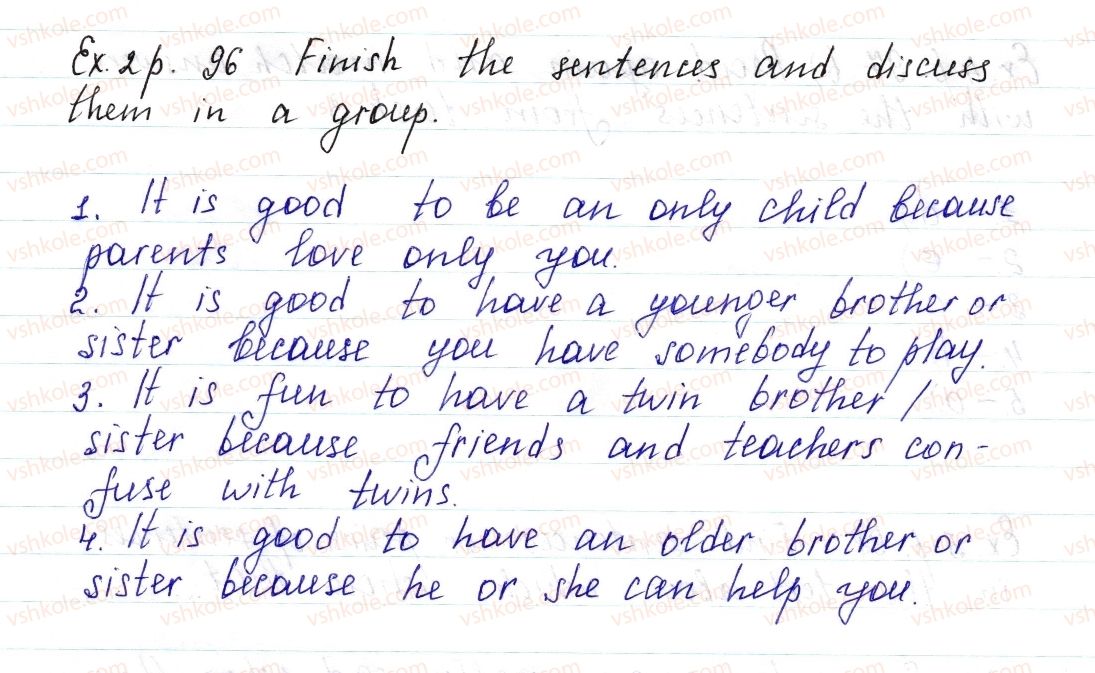 Ex. 2 p. 96 Finish the sentences and discuss
them in a group.
1. It is good to be an only child because
parents love only you.
2. It is good to have a younger brother or
sister because you have somebody to play.
3. It is fun to have a twin brother /
sister because friends and teachers con-
fuse with twins.
4. It is good to have an older brother or
sister because he or she can help you.
vshkole.com